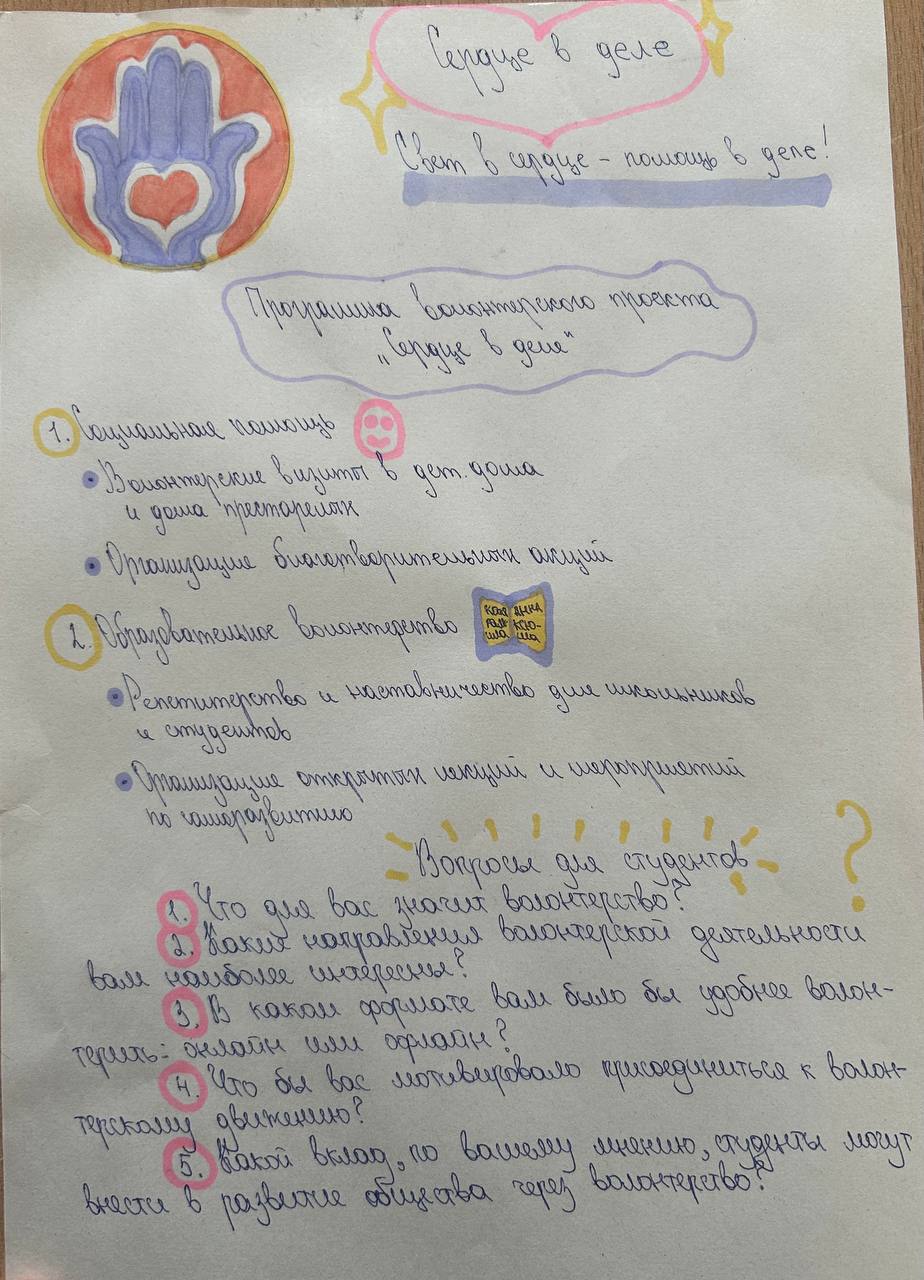 Сердце в деле
Свет в сердце - помощь в деле!
Программа волонтерского проекта
„Сердце в деле“
1. Социальная помощь
Волонтерские визиты в дет. дома
и дома престарелых
Организация благотворительных акций
2. Образовательное волонтерство
Репетиторство и наставничество для школьников
и студентов
Организация открытых лекций и мероприятий
по саморазвитию
Вопросы для студентов ?
1. Что для вас значит волонтерство?
2. Какие направления волонтерской деятельности
вам наиболее интересны?
3. В каком формате вам было бы удобнее волон-
терить: онлайн или офлайн?
4. Что бы вас мотивировало присоединиться к волон-
терскому движению?
5. Какой вклад, по вашему мнению, студенты могут
внести в развитие общества через волонтерство?